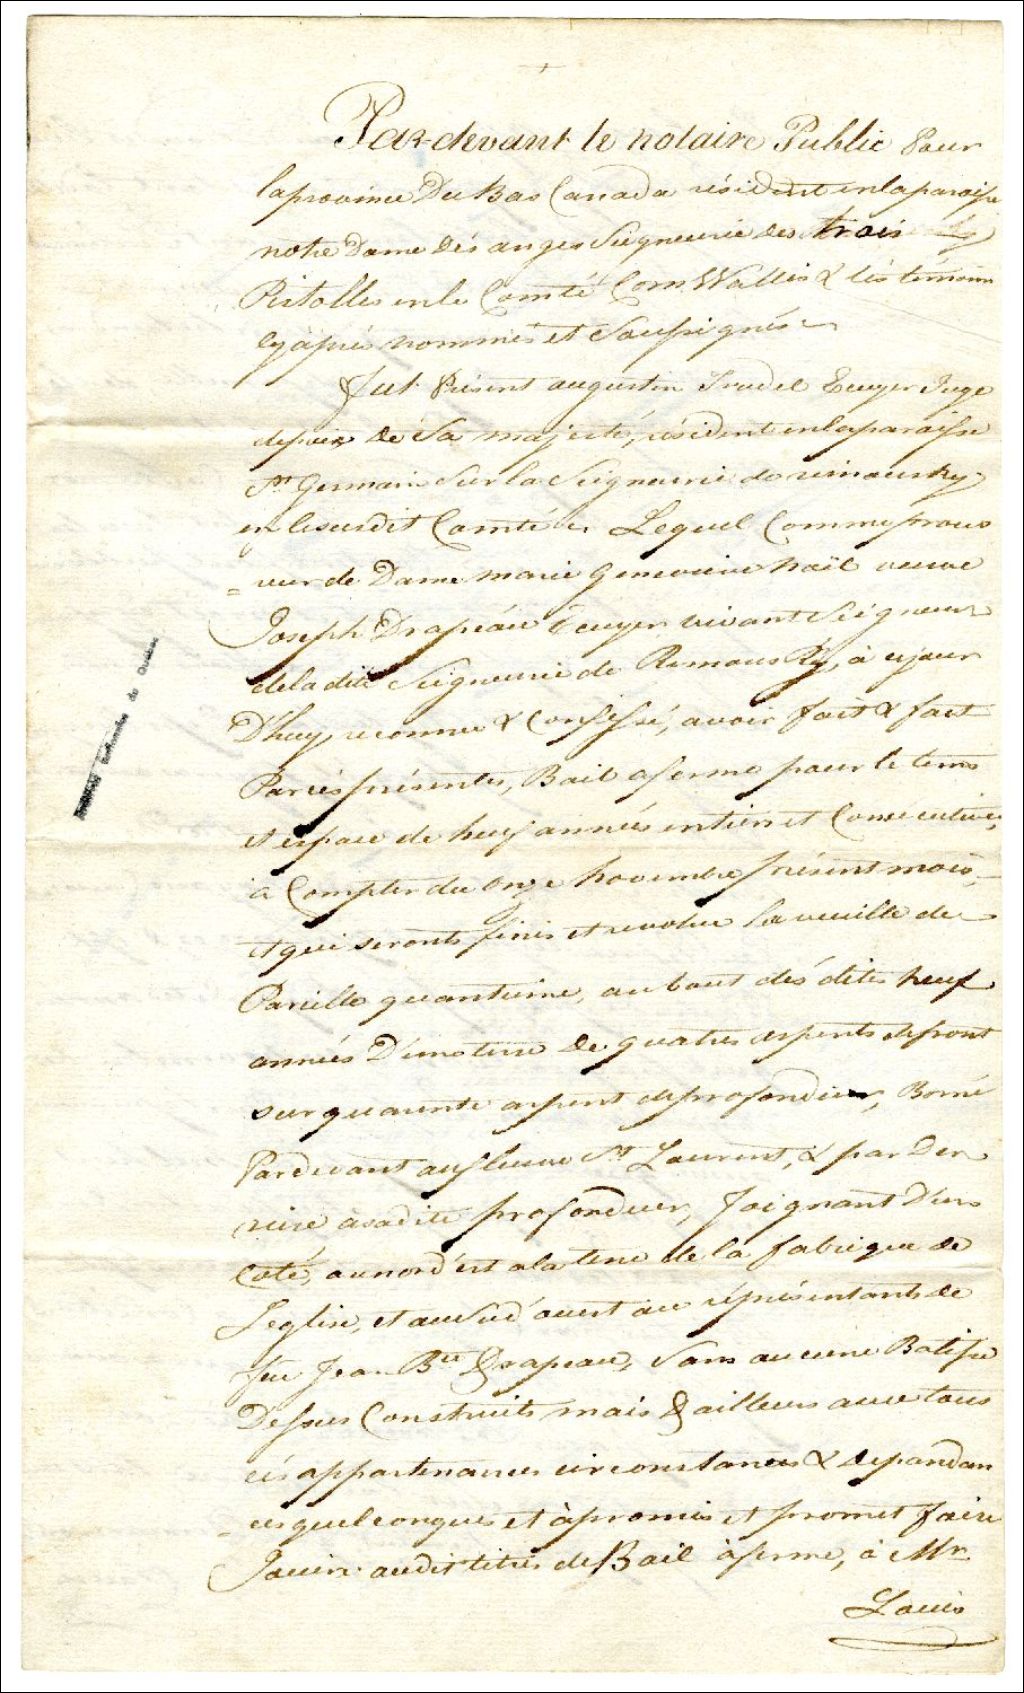 Par devant le notaire Public Pour
la province Du Bas Canada résident en la paroisse
notre Dame dés anges Seigneurie des trois
Pistolles en le Comté Corn Wallis & lés témoins
cy àprés nommés et Soussignés
fut Présent augustin Trudel Ecuyer Juge
depaix de Sa majesté, résident en laparoisse
St Germain Sur la Seigneurie de rimousky
en lesusdit Comté Lequel Comme procu
= reur de Dame marie Genevieve noël veuve
Joseph Drapeau Ecuyer vivant Seigneur
dela dite Seigneurie de Rimousky, à cejour
D'huy, reconnu & Confessé, avoir fait & fait
Par cés présentes, Bail aferme pour le tems
et espace de neuf années entieres et Consécutives,
à Compter du onze novembre présent mois,
et qui seronts finis et revolue la veuille de
Pareille quantieme, au bout dés dites neuf
années D'une terre de quatres arpents defront
sur quarente arpent deprofondeur, Borné
Pardevant aufleuve St Laurent, & par Der
riere àsadite profondeur, Joignant D'un
Coté, aunord'est alaterre de la fabrique de
Leglise, et ausud ouest au réprésentants de
feu Jean Bte Drapeau, Sans aucune Batisse
Dessus Construits mais D'ailleurs avec tous
cés appartenances circonstances & dépandan
= ces quelconques et àpromis et promet faire
Jouir audit titre de Bail àferme, à Mr
Louis